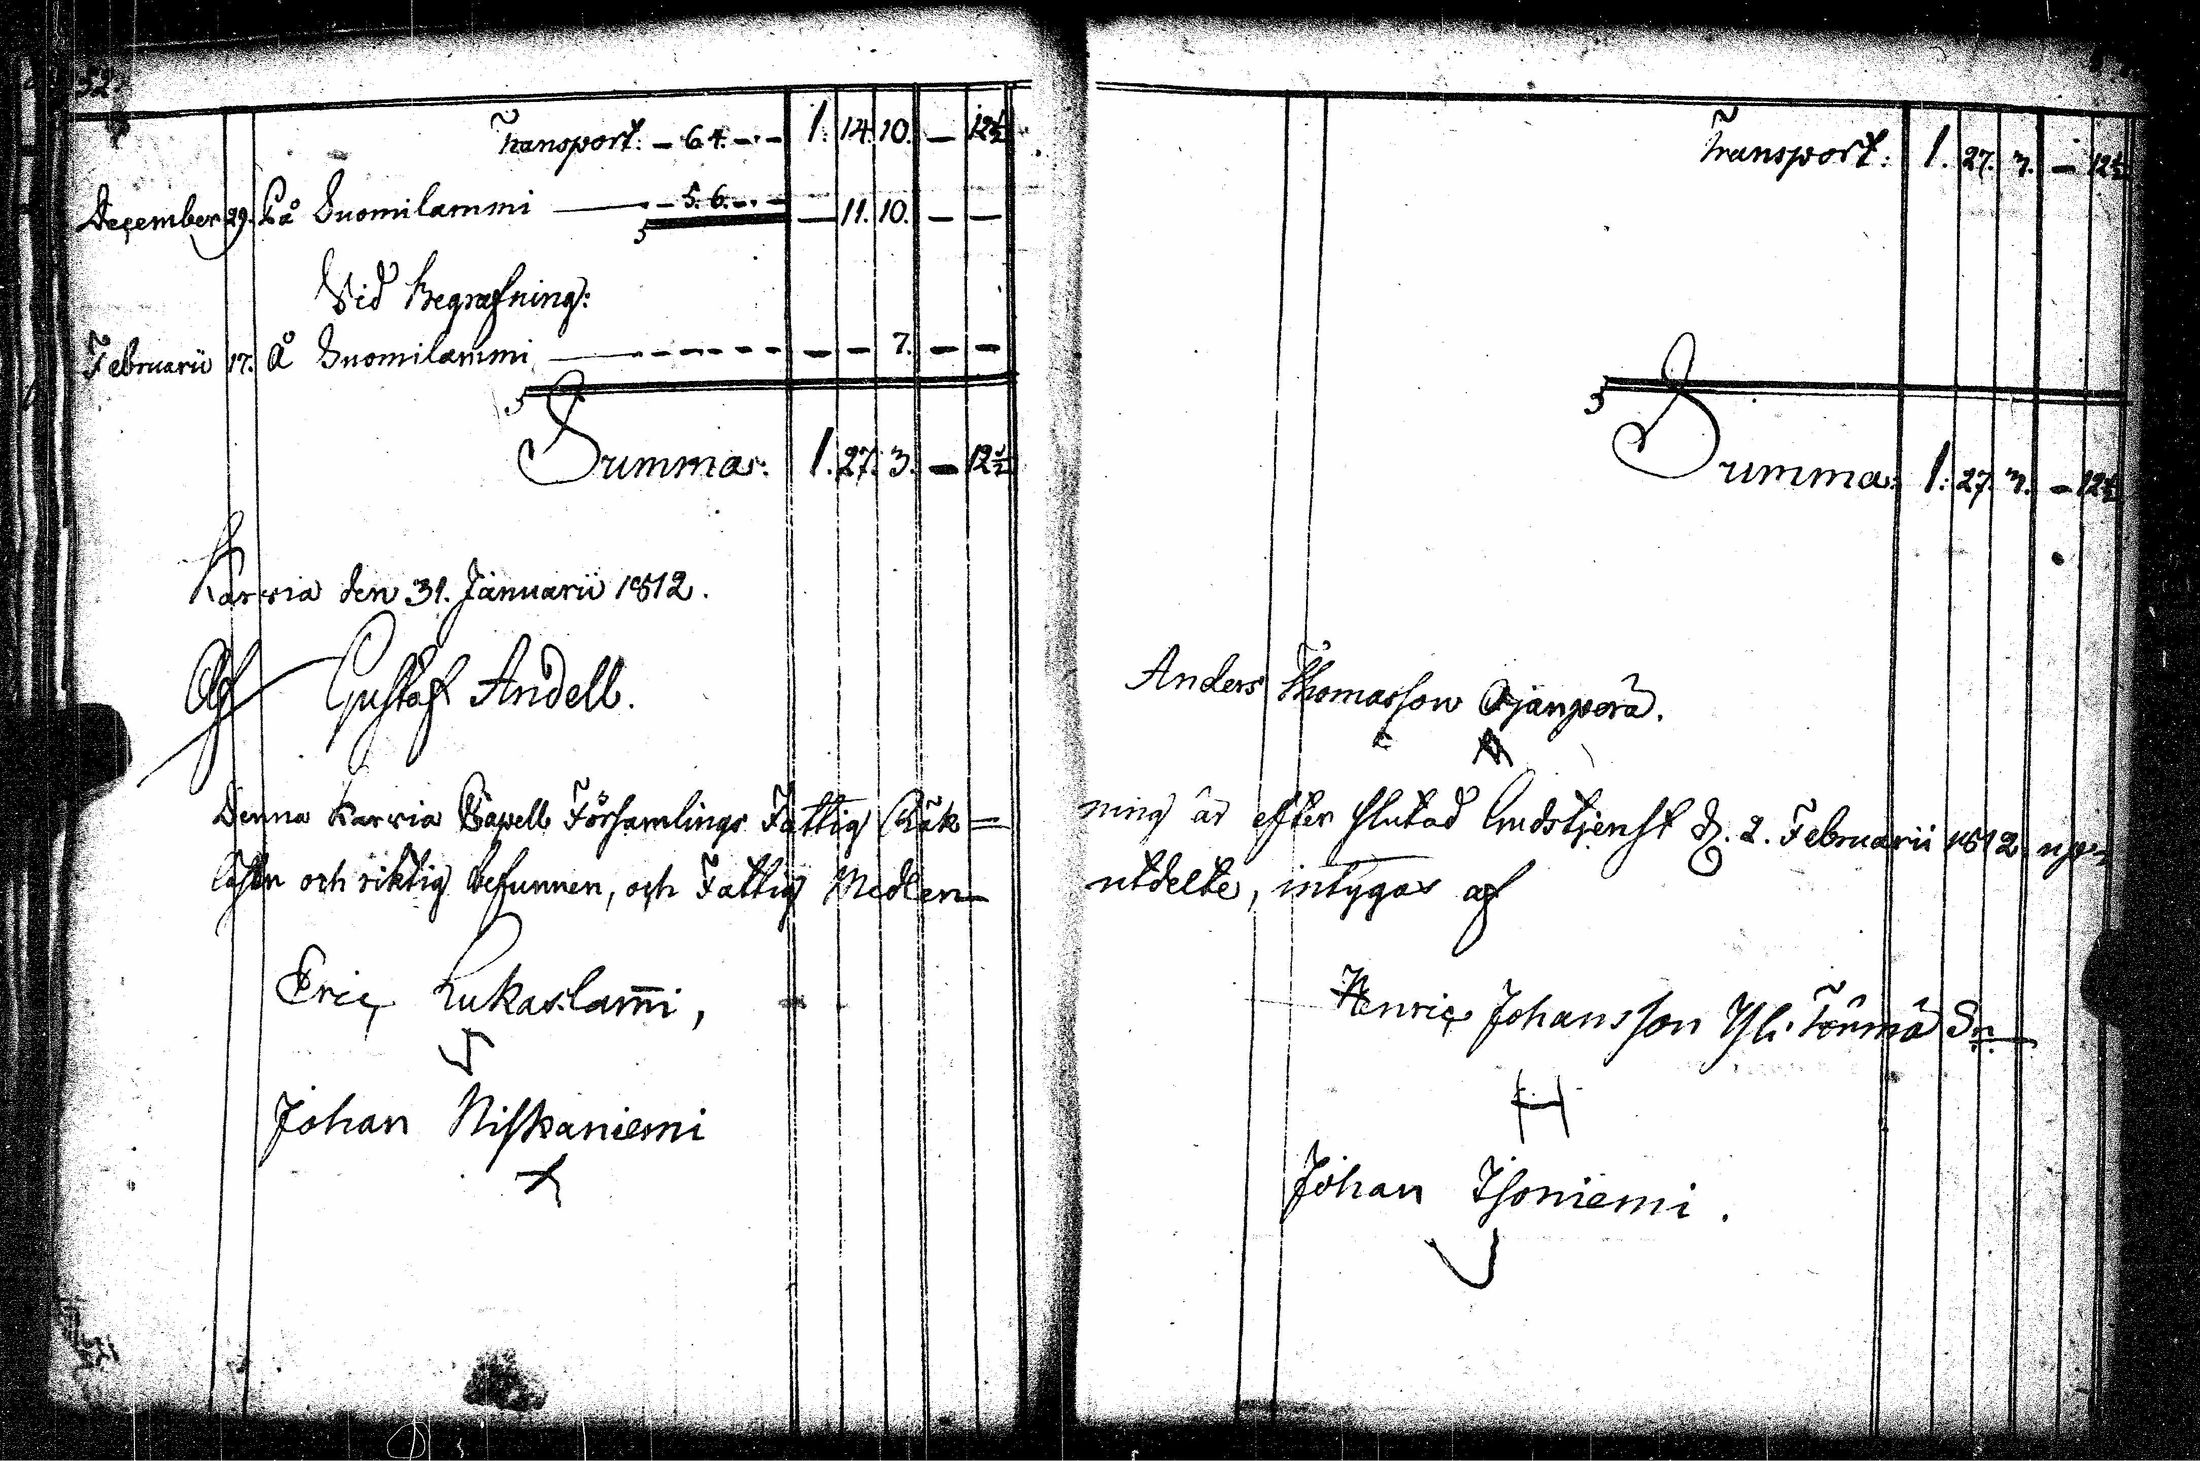 32.
Transport: - 6.4. - - 1. 14. 10. - 12½
December 29. På Suomilammi - 5. 6. - - - 11. 10. - -
Vid Begrafning:
Februarii 17. Å Suomilammi - - - - - - - 7. - -
Summa: 1. 27. 3. - 12½
Karvia den 31. Januarii 1812.
Gustaf Andell.
Denna Karvia Capell Församlings Fattig Räk=
och riktig befunnen, och Fattig Medlen
Eric Lukaslam̄i,
Johan Niskaniemi
Transport: 1. 27. 3. - 12½
Summa: 1. 27. 3. - 12½
Anders Thomasson Ojanperä.
ning är efter slutad Gudstjenst d. 2. Februarii 1812
utdelte, intygas af
Henric Johansson Yli Törmä
Johan Isoniemi.